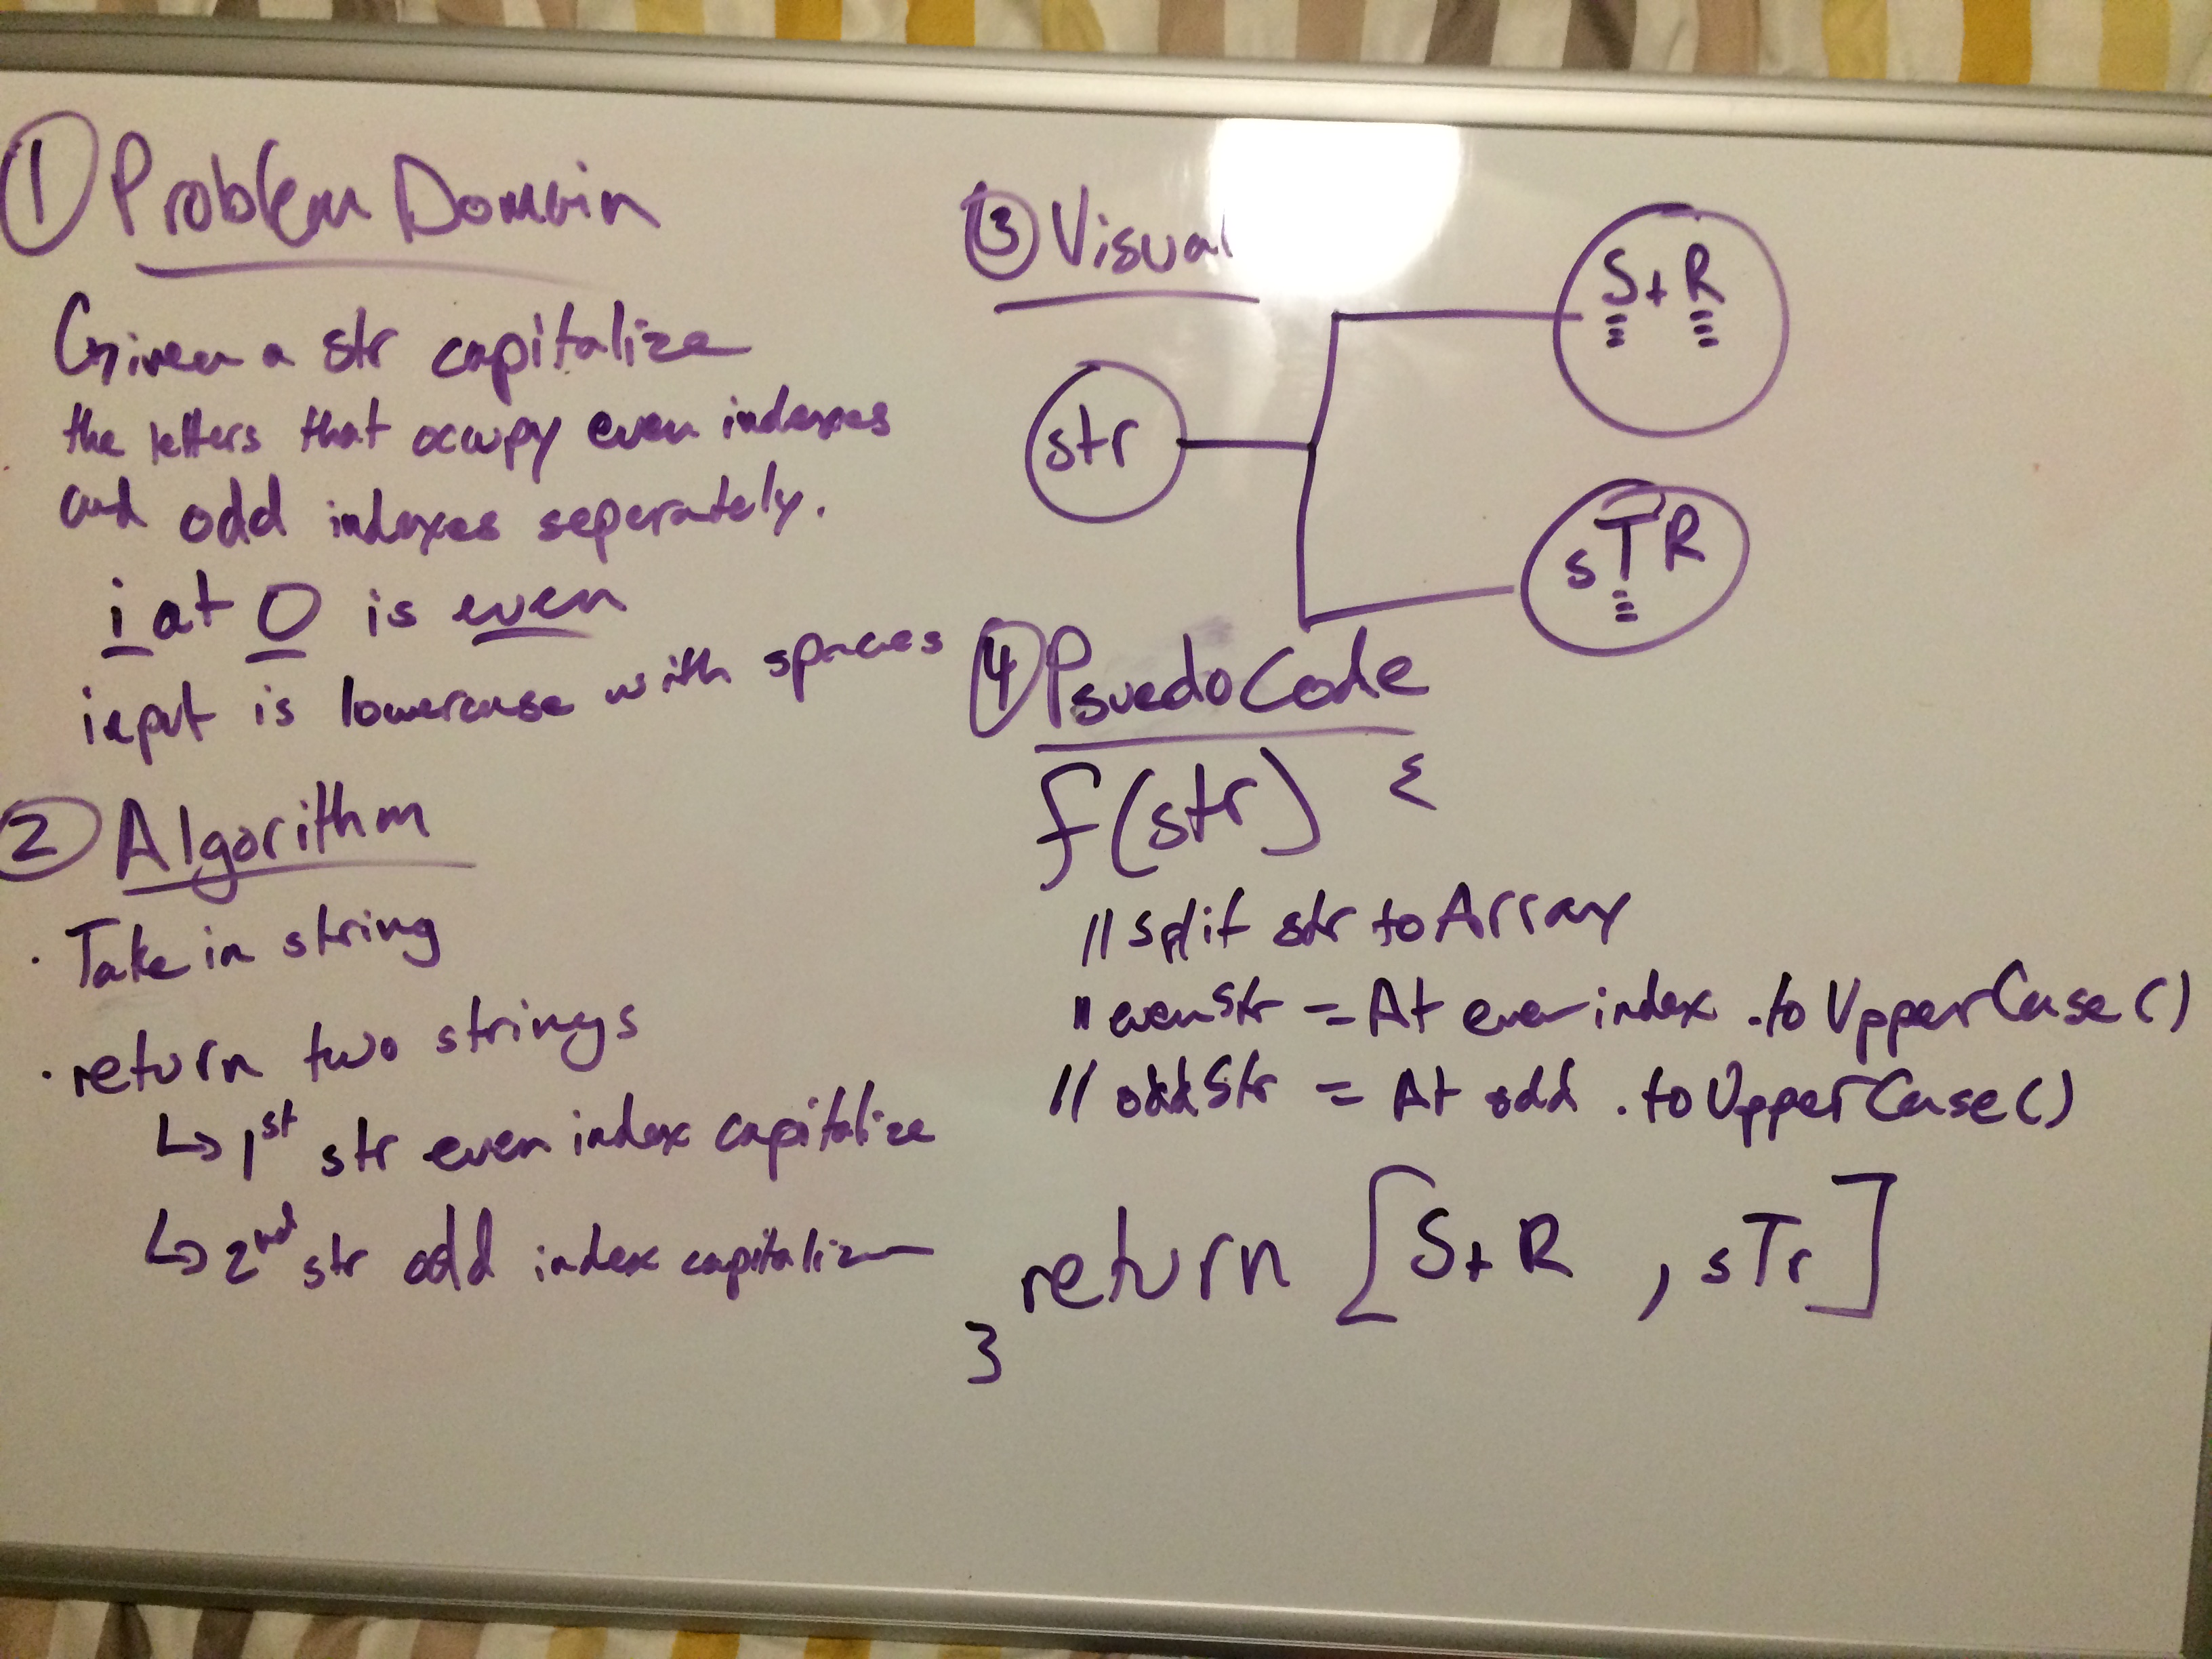 ① Problem Domain
Given a str capitalize
the letters that occupy even indexes
and odd indexes seperately.
i at 0 is even
input is lowercase with spaces
② Algorithm
. Take in string
. return two strings
↳ 1st str even index capitalize
↳ 2nd str odd index capitalize
③ Visual
str
StR
sTR
④ PsuedoCode
f(str) {
// split str to Array
" evenStr = At even index .toUpperCase()
// oddStr = At odd .toUpperCase()
return [StR, sTr]
}